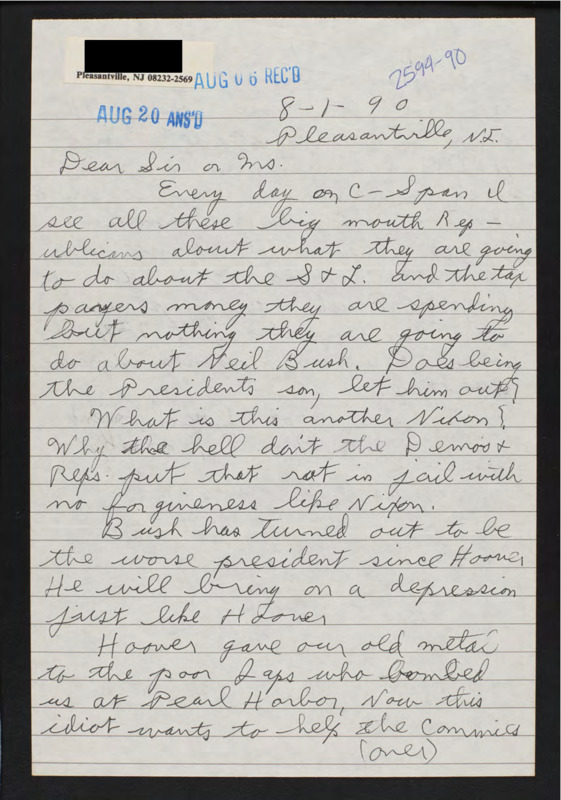 Pleasantville, NJ 08232-2569
AUG 06 REC'D
2594-90
AUG 20 ANS'D
8-1-90
Pleasantville, N.J.
Dear Sir or Ms.
Every day on C-Span I
see all these big mouth Rep-
ublicans about what they are going
to do about the S & L. and the tax
payers money they are spending
but nothing they are going to
do about Neil Bush. Does being
the Presidents son, let him out?
What is this another Nixon?
Why the hell don't the Demos &
Reps. put that rat in jail with
no forgiveness like Nixon.
Bush has turned out to be
the worse president since Hoover
He will bring on a depression
just like Hoover
Hoover gave our old metal
to the poor Japs who bombed
us at Pearl Harbor, Now this
idiot wants to help the Commies
(over)